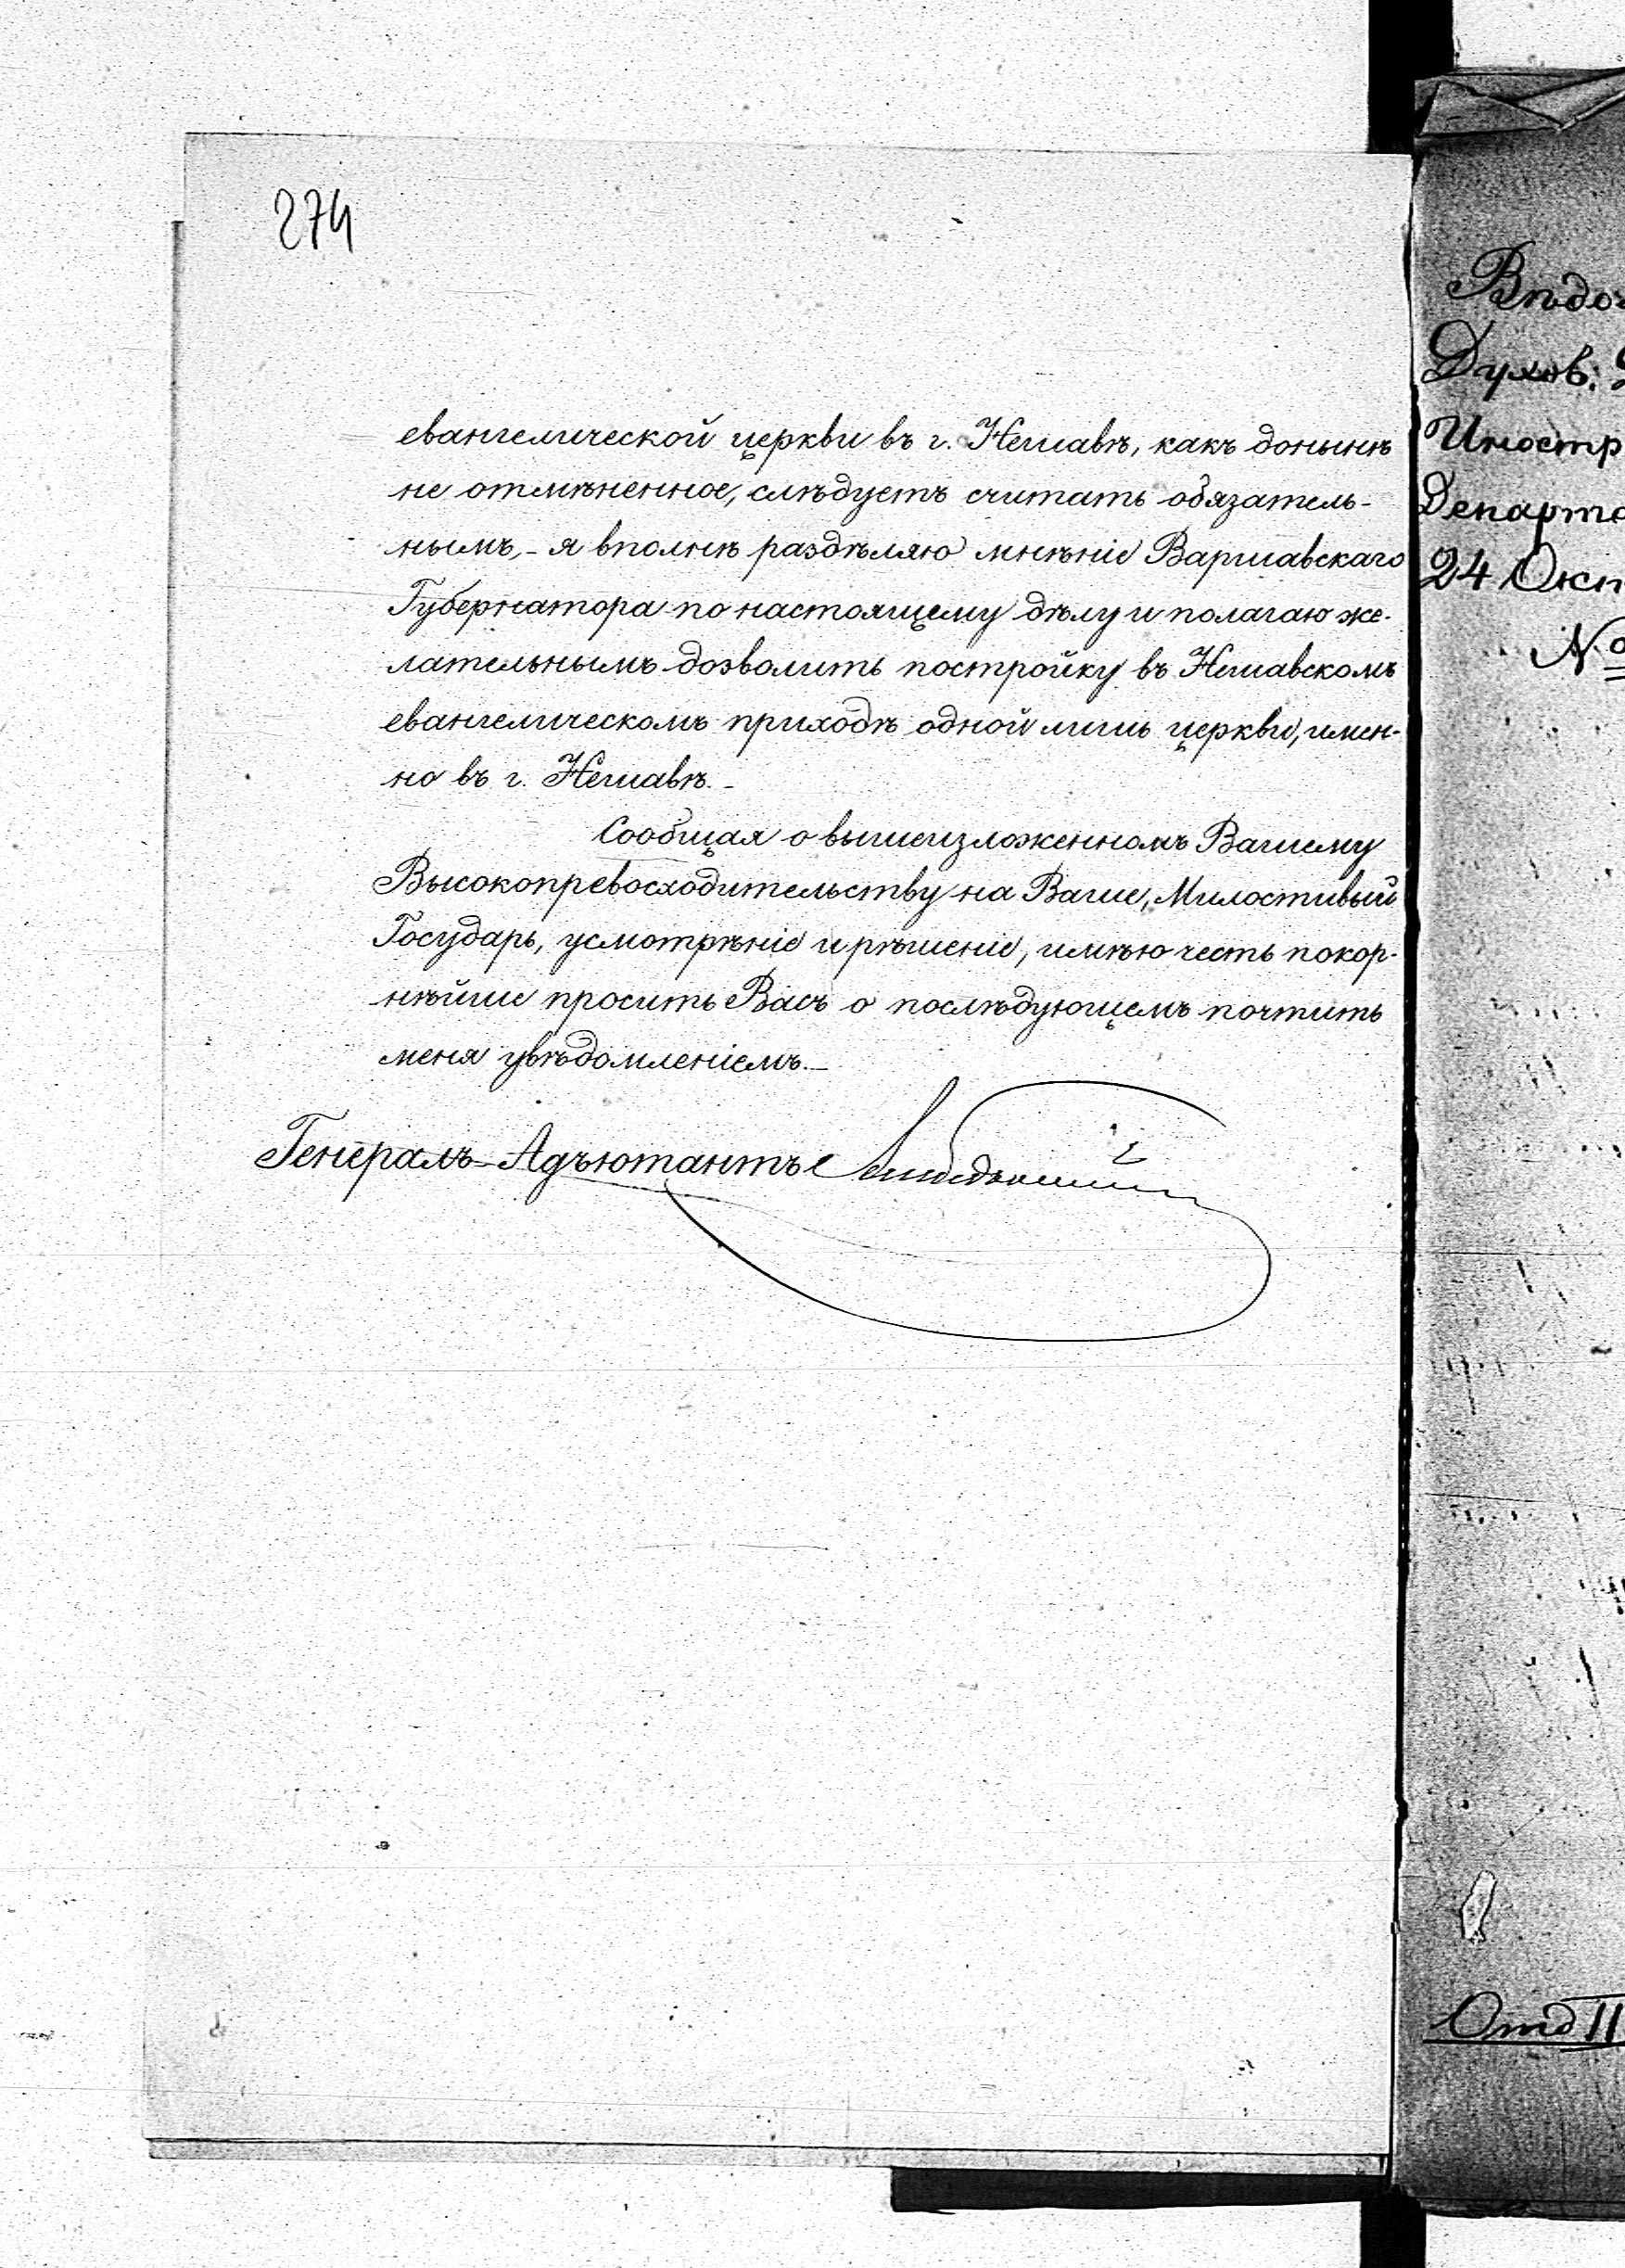 274
евангелической церкви въ г. Нешавѣ, какъ донынѣ
не отмѣненное, слѣдуетъ считать обязатель-
нымъ, - я вполнѣ раздѣляю мнѣніе Варшавскаго
Губернатора по настоящему дѣлу и полагаю же-
лательнымъ дозволить постройку въ Нешавскомъ
евангелическомъ приходѣ одной лишь церкви, имен-
но въ г. Нешавѣ. -
Сообщая о вышеизложенномъ Вашему
Высокопревосходительству на Ваше, Милостивый
Государь, усмотрѣніе и рѣшеніе, имѣю честь покор-
нѣйше просить Васъ о послѣдующемъ почтить
меня увѣдомленіемъ. -
Генералъ-Адъютантъ
Духов.
Иностр
Департа
24 Окт
№
Отд II